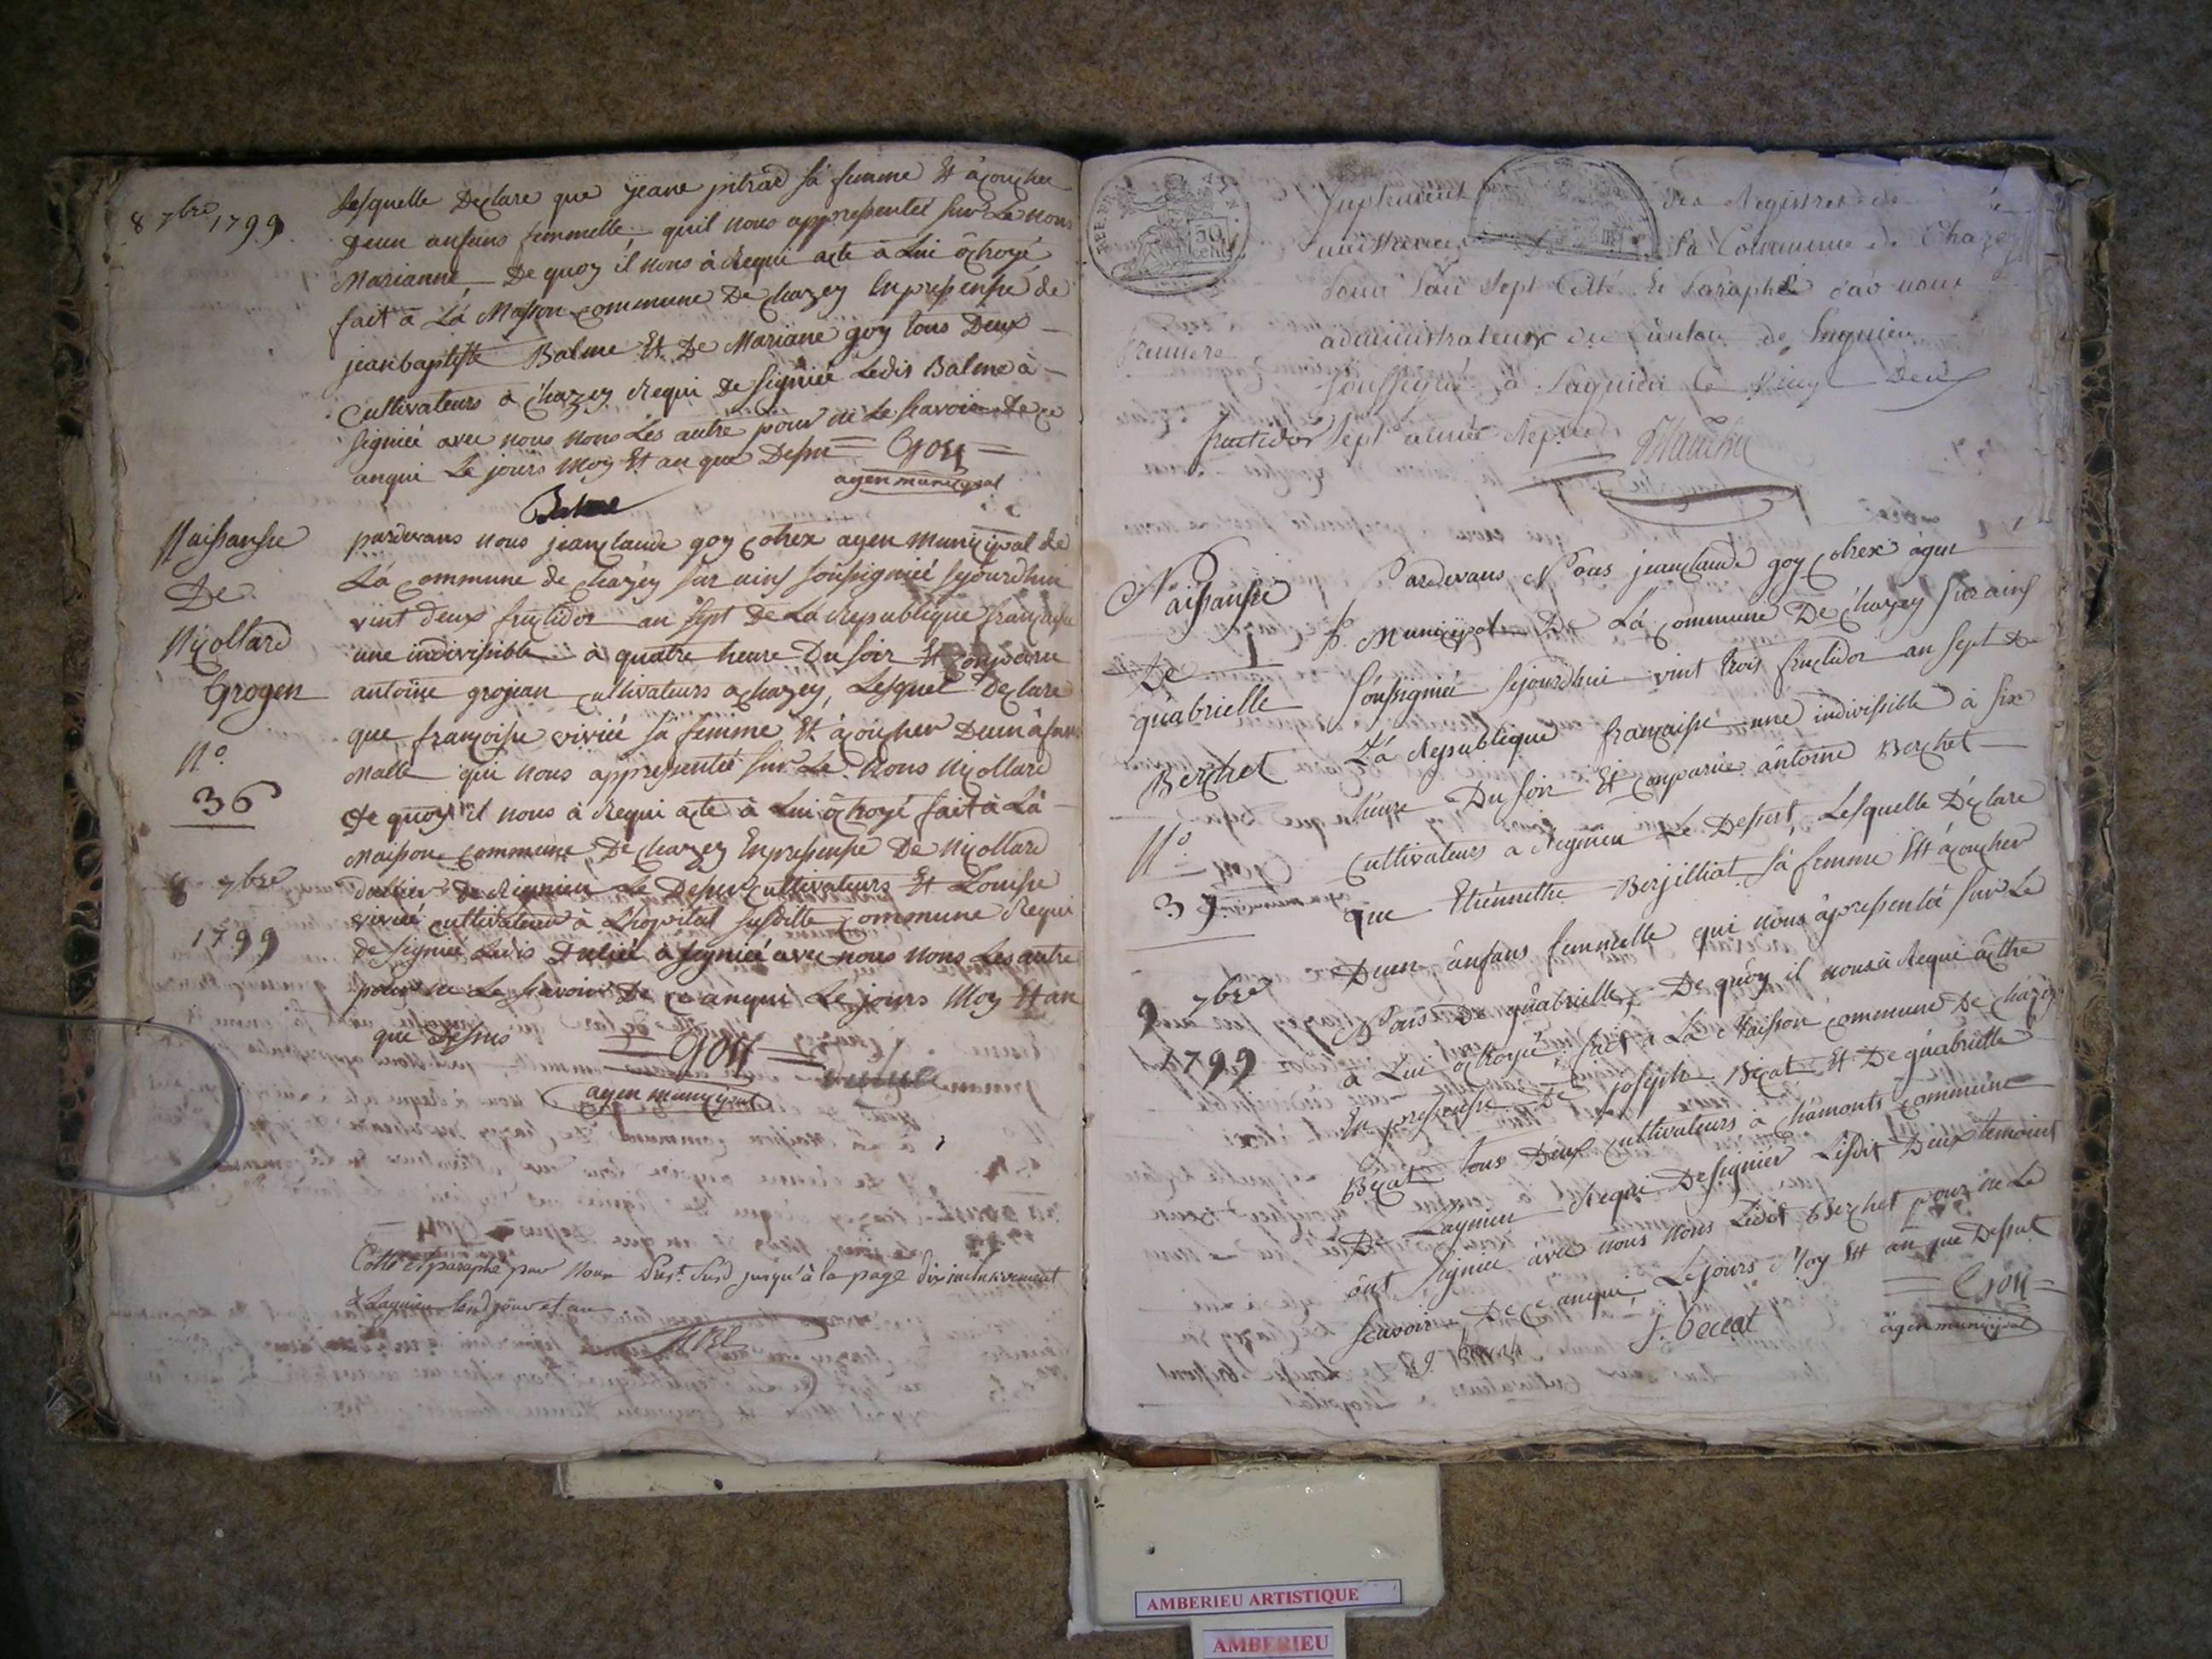 8 7bre 1799
Lesquelle Declare que jeane pitrad sa femme Et acoucher
Deun anfans femmelle, quil nous appresentéé sur Le nons
Marianne, De quoy il nous à Requi acte à Lui ôctroyé
fait à Là Maison commune De chazey En presensse de
jeanbaptiste Balme Et De Mariane goy tous Deux
Cultivateurs a chazey Requi de signiéé Ledis Balme à
signiéé avec nous nons Les autre pour ne Le scavoir De ce
anqui Le jours Moy Et an que Desus = Goy =
agen municipal
Balme
Naissansse
De
Nicollard
Grogen
N.o
36
8 7bre
1799
pardevans nous jeanclaude goy cohex agen municipal de
Là commune de chazey sur ains soussigniéé sejourdhui
vint deux fructidor an sept De La Republique française
une indivissible à quatre heure Du soir Et comparu
antoine grojean cultivateurs a chazey, Lesquel Declare
que françoisse viviéé sa femme Et àcoucher Deun àfans
malle qui nous appresentéé sur Le Nons Nicollard
De quoy il nous à Requi acte à Lui ôctroyé fait à Là
Maison commune De chazey En presensse De Nicollard
de Rignieu Le Desert cultivateurs Et Louisse
viviéé cultivateur à Lhopital susditte commune Requi
de signiéé Ledis Duliéé à signiéé avec nous nons Les autre
pour ne Le scavoir De ce anqui Le jours Moy Et an
que Desus
= Goy =
agen municipal
Cotté et paraphé par Nous Prest. Susd jusqu'à la page dix inclusivement
à Lagnieu lesd jour et an
50 cent
Suplement des Registres de
naissances de La Commune de Chazey
pour Lan Sept Cotté Et Paraphé par nous
administrateur du Canton de Lagnieu
Soussigné à Lagnieu le Vingt Deux
fructidor Sept année Rep.
Premiere
Naissansse
De
guabrielle
Berchet
N.o
37
9 7bre
1799
Pardevans Nous jeanclaude goy cohex àgen
Municipal De Là commune De chazey sur ains
soussigniéé sejourdhui vint trois fructidor an sept De
Là Republique française une indivissible à six
heure Du soir Et comparue àntoine Berchet
cultivateurs a Rignieu Le Dessert, Lesquelle Declare
que Etiennethe Berjilliat sà femme Et àcoucher
Deun ânfans femmelle qui nous àpressentéé sur Le
Nons De guabrielle, De quoy il nous à Requi acthe
à Lui octroyéé, fait à Là Maisson commune De chazey
En pressensse De joseph Bécat Et De guabrielle
Bécat tous Deux cultivateurs à chamonts commune
De Lagnieu Requi De signiér Lesdit Deux temoint
ônt signiéé avec nous nons Ledit Berchet pour ne Le
scavoir De ce anqui, Le jours Moy Et an que Dessut
= Goy =
àgen municipal
J. beccat
AMBERIEU ARTISTIQUE
AMBERIEU